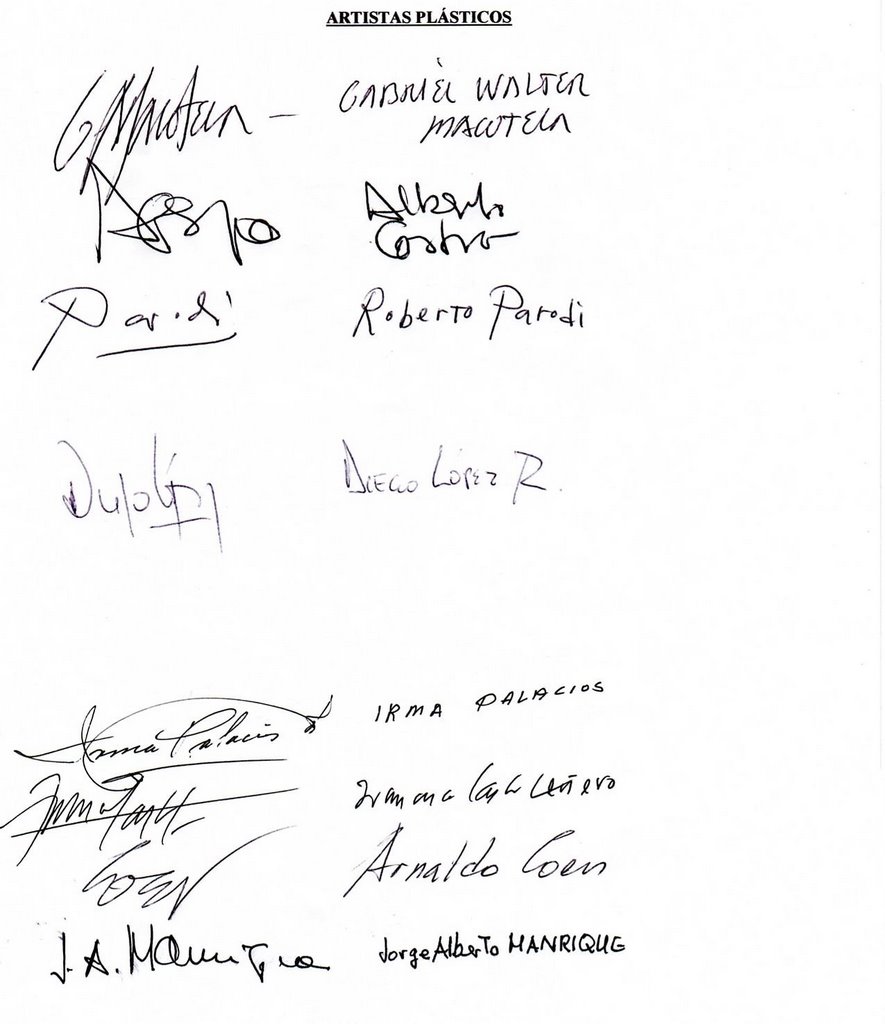 ARTISTAS PLÁSTICOS
GMacotela - GABRIEL WALTER
MACOTELA
Alberto
Castro
Parodi Roberto Parodi
DIEGO LÓPEZ R.
Irma Palacios IRMA PALACIOS
Leñero
COEN Arnaldo Coen
J. A. Manrique Jorge Alberto MANRIQUE